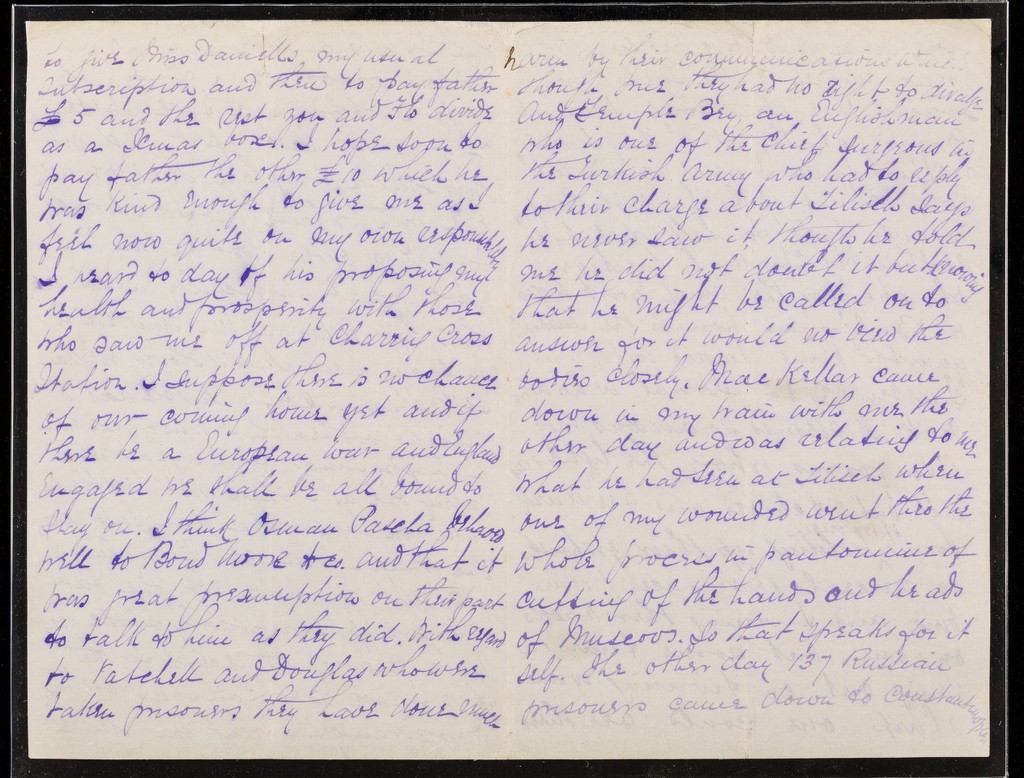 to give Miss Daniells my usual
Subscription and then to pay father
£5 and the rest you and Flo divide
as a Xmas box. I hope soon to
pay father the other £10 which he
was kind enough to give me as I
feel now quite on my own responsibility
I heard to day of his proposing my
health and prosperity with those
who saw me off at Charring Cross
Station. I suppose there is no chance
of our coming home yet and if
there be a European war and England
Engaged we shall be all bound to
stay on. I think Osman Pascha behaved
well to Bond Moore & co. and that it
was great presumption on their part
to talk to him as they did. With regard
to Vatchell and Douglas who were
taken prisoners they have done much
harm by their communications which
though true they had no right to divulge
and Temple Bey, an Englishman
who is one of the chief surgeons in
the Turkish Army who had to reply
to their charge about Tilisch says
he never saw it, though he told
me he did not doubt it but knowing
that he might be called on to
answer for it would no view the
bodies closely. Mac Kellar came
down in my train with me the
other day and was relating to me
what he had seen at Tilisch when
one of my wounded went thro the
whole process in pantomime of
cutting of the hands and heads
of Muscovs. So that speaks for it
self. The other day 137 Russian
prisoners came down to Constantinople